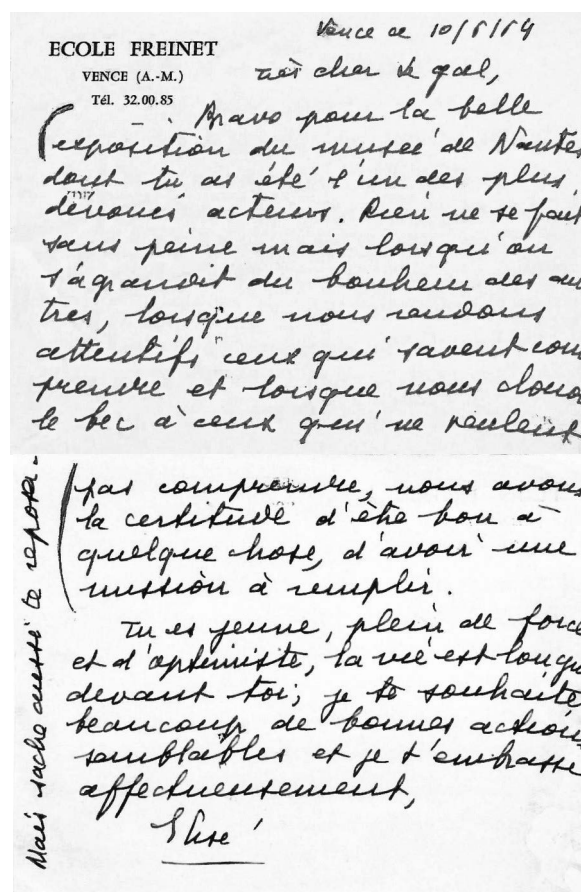 Vence ce 10/5/64
ECOLE FREINET
VENCE (A.-M.)
Tél. 32.00.85
très cher Le gal,
Bravo pour la belle
exposition du musée de Nantes
dont tu as été l'un des plus
dévoués acteurs. Rien ne se fait
sans peine mais lorsqu'on
s'agrandit du bonheur des au
tres, lorsque nous rendons
attentifs ceux qui savent com
prendre et lorsque nous clouo
le bec à ceux qui ne veulent
pas comprendre, nous avons
la certitude d'être bon à
quelque chose, d'avoir une
mission à remplir.
Tu es jeune, plein de force
et d'optimiste, la vie est longu
devant toi; je te souhaite
beaucoup de bonnes action
semblables et je t'embrasse
affectueusement,
Elise
Mais sache aussi te reposer.